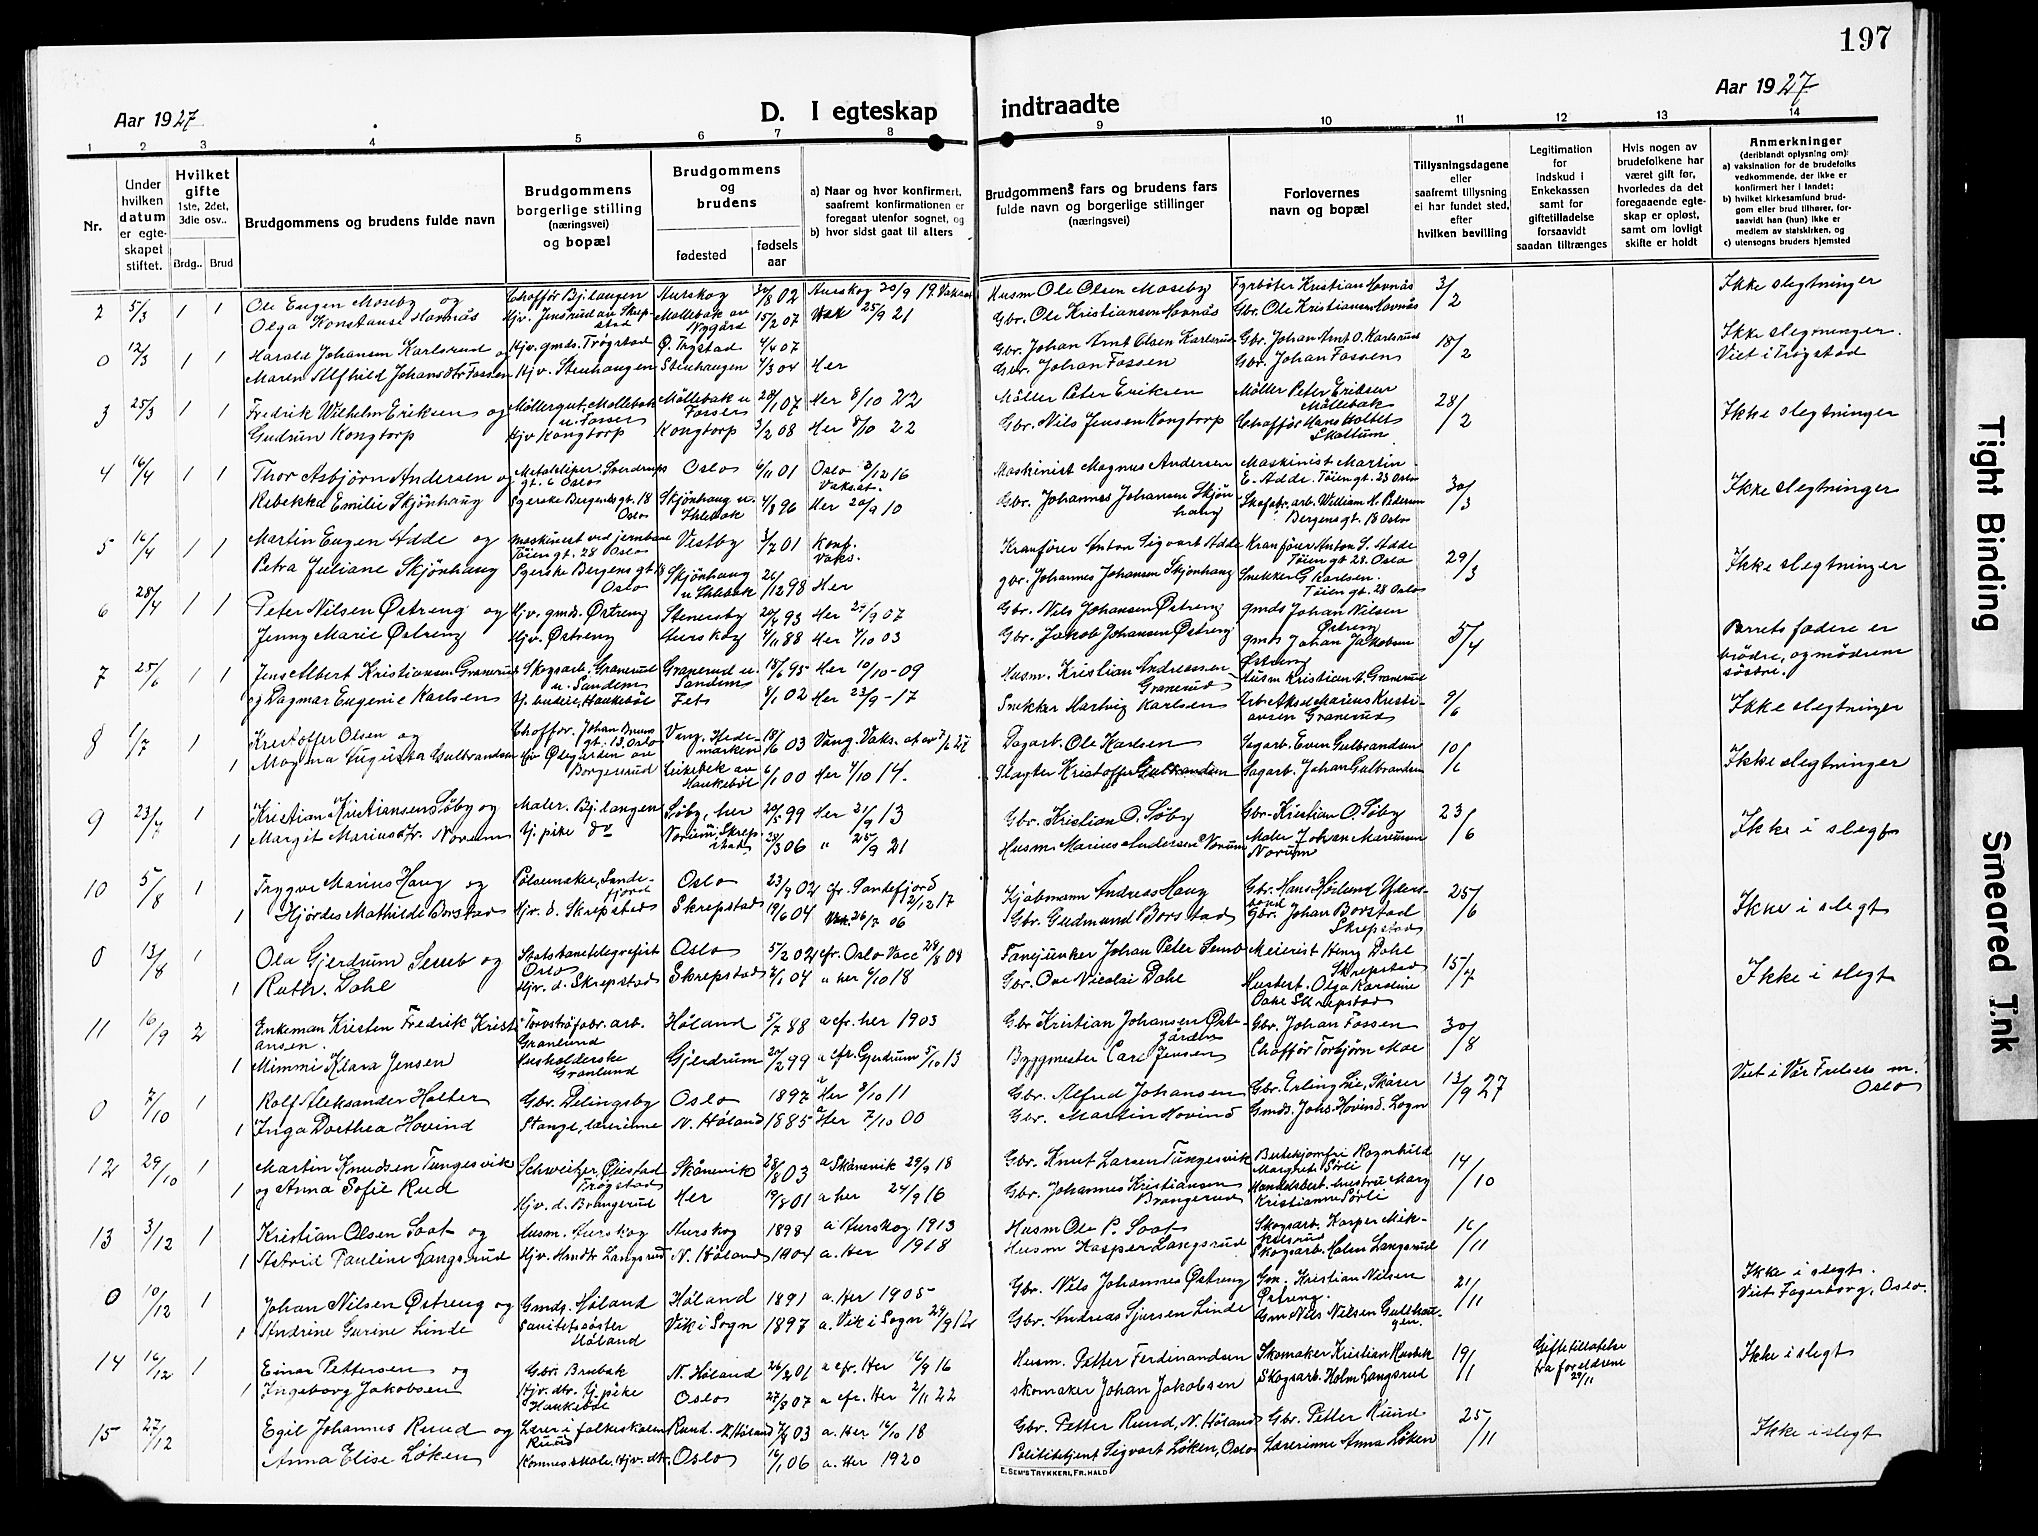 197
Aar 1927
D. I egteskap indtraadte
Aar 1927
1 2 3 4 5 6 7 8 9 10 11 12 13 14
Nr.
Under hvilken datum er egteskapet stiftet.
Hvilket gifte 1ste, 2det, 3die osv..
Brdg.. Brud
Brudgommens og brudens fulde navn
Brudgommens borgerlige stilling (næringsvei) og bopæl
Brudgommens og brudens
fødested
fødsels aar
a) Naar og hvor konfirmert, saafremt konfirmationen er foregaat utenfor sognet, og
b) hvor sidst gaat til alters
Brudgommens fars og brudens fars fulde navn og borgerlige stillinger (næringsvei)
Forlovernes navn og bopæl
Tillysningsdagene eller saafremt tillysning ei har fundet sted, efter hvilken bevilling
Legitimation for indskud i Enkekassen samt for giftetilladelse forsaavidt saadan tiltrænges
Hvis nogen av brudefolkene har været gift før, hvorledes da det foregaaende egteskap er opløst, samt om lovligt skifte er holdt
Anmerkninger (deriblandt oplysning om):
a) vaksination for de brudefolks vedkommende, der ikke er konfirmert her i landet;
b) hvilket kirkesamfund brudgom eller brud tilhører, forsaavidt han (hun) ikke er medlem av statskirken, og
c) utensogns bruders hjemsted
2 5/3 1 1 Ole Eugen Moseby og Chaffør Bjilangen Aurskog 30/8 02 Aurskog 20/9 19. Husm Ole Olsen Moseby Fyrbøter Kristian Hovnås 3/2 Ikke slegtninger
Olga Konstanse Hovnås 15/2 07 25/9 21 Gbr. Ole Kristiansen Hovnås Gbr. Ole Kristiansen Hovnås
0 12/3 1 1 Harald Johansen Karlsrud og Hjv. gmds. Trøgstad Ø. Trøstad 4/4 07 Gbr. Johan Amt Olsen Karlsrud Gbr. Johan Amt O. Karlsrud 18/2 Ikke slegninger.
Maren Alfhild Johansdtr Fossen Hjv. Stenhaugen Stenhaugen 4/3 04 Her Gbr. Johan Fossen Gbr. Johan Fossen Viet i Trøgstad
3 25/3 1 1 Fredrik Wilhelm Eriksen og Møllergut, Møllebak u. Fosser Møllebak u Fosser 28/1 07 Her 8/10 22 Møller Peter Eriksen Møller Peter Eriksen Møllebak 28/2 Ikke slegtninger
Gudrun Kongtorp Hjv Kongtorp Kongtorp 3/2 08 Her 8/10 22 Gbr. Nils Jensen Kongtorp Chaffør Hans Holtet
4 16/4 1 1 Thor Asbjørn Andersen og gt. 6 Oslo Oslo 6/11 01 Oslo 3/12 16 Vaksat. Maskinist Magnus Andersen Maskinist Martin E. Adde. Tøien gt. 28 Oslo 30/3 Ikke slegtninger
Rebekka Emilie Skjønhaug Syerske Bergensgt. 18 Oslo Skjønhaug u. Ihlebæk 4/8 96 Her 20/9 10 Gbr. Johannes Johansen Skjønhaug Skofabr. arb. William H. Petersen Bergens gt. 18 Oslo
5 16/4 1 1 Martin Eugen Adde og maskinist ved jernbane Tøien gt. 28 Oslo Vestby 3/7 01 Konf. Vaks. Kranfører Anton Sigvart Adde Kranfører Anton S. Adde Tøien gt 28. Oslo 29/3 Ikke slegtninger
Petra Juliane Skjønhaug Syerske Bergens gt 18 Oslo Skjønhaug u Ihlebæk 26/12 98 Her gbr. Johannes Johansen Skjønhaug Snekker G Karlsen. Tøien gt. 28 Oslo
6 28/4 1 1 Peter Nilsen Østreng og Hjv. gmds. Østreng Stenersby 20/4 93 Her 29/9 07 Gbr. Nils Johansen Østreng gmds Johan Nilsen Østreng 5/4 Parrets fædere er brødre, og mødrene søstre.
Jenny Marie Østreng Hjv. Østreng Aurskog 4/11 88 Her 4/10 03 Gbr. Jakob Johansen Østreng gmds Johan Jakobsen Østreng
7 25/6 1 1 Jens Albert Kristiansen Granerud Skogsarb. Granerud u. Sandem Granerud u. Sandem 15/6 95 Her 10/10-09 Husm. Kristian Andreassen Granerud Husm Kristian A. Granerud 9/6 Ikke slegtninger
og Dagmar Eugenie Karlsen Haukebøl Fet 8/1 02 Her 23/9-17 Snekker Hartvig Karlsen Arb. Aksel Marius Kristiansen Granerud
8 1/7 1 Kristoffer Olsen og Choffør. Johan Bruns gt. 13. Oslo Vang, Hedemarken 18/6 03 Vang. Vaks. at av 7/6 27 Dagarb. Ole Karlsen Sagarb. Even Gulbrandsen 10/6 Ikke slegtninger
1 Magna Augusta Gulbrandsen Haukebøl 6/1 00 Her 4/10 14. Slagter Kristoffer Gulbrandsen Sagarb. Johan Gulbrandsen
9 23/7 1 Kristian Kristiansen Søby og Maler. Bjilangen Søby, her 20/5 99 Her 21/9 13 Gbr. Kristian O. Søby Gbr. Kristian O. Søby 23/6 Ikke i slegt
1 Margit Mariusdtr. Norum tj. pike do Norum, Skrepstad 28/3 06 " 25/9 21 Husm Marius Andersen Norum Maler Johan Mariusen Norum
10 5/8 1 Trygve Marius Haug og Pølsemaker, Sandefjord Oslo 23/9 02 cfr. Sandefjord 2/12 17 Kjøbmann Andreas Haug Gbr. Hans Hørlund 25/6 Ikke i slegt
1 Hjørdes Mathilde Borstad Hjv. d. Skrepstad Skrepstad 19/6 04 Gbr. Gudmund Borstad Gbr. Johan Borstad Skrepstad
0 13/8 1 Ola Gjerdrum Semb og Statsbanetelegrafist Oslo Oslo 5/2 02 cfr. Oslo Vacc 28/8 08 Fanejunker Johan Peter Semb Meierist Henry Dahl Skrepstad 15/7 Ikke i slegt
1 Ruth. Dahl Hjv. d. Skrepstad Skrepstad 2/1 04 " her 4/10 18 Gbr. Ove Nicolai Dahle Husbest. Olga Karoline Dahl Skrepstad
11 16/9 2 Enkeman Kristen Fredrik Kristiansen. Torvstrøfabr. arb. Granlund Høland 5/7 88 a cfr. her 1903 Gbr Kristian Johansen Gbr. Johan Fossen 30/8
1 Mimmi Klara Jensen Husholderske Granlund Gjerdrum 27/2 99 a cfr. Gjerdrum 5/10 13 Byggmester Carl Jensen Chaffør Torbjørn Moe
0 7/10 1 Rolf Aleksander Holter Gbr. Delingsby Oslo 1897 Her 8/10 11 Gbr. Alfred Johansen Gbr. Erling Lie, Skårer 13/9 27 Viet i Vår Frelsers m. Oslo
1 Inga Dorthea Hovind Stange, lærerinne N. Høland 1885 Her 7/10 00 Gbr. Martin Hovind Gmds. Johs. Hovind. Løgn
12 29/10 1 Martin Knudsen Tungesvik Schweitzer, Øiestad Trøgstad Skånevik 28/8 03 a Skånevik 29/9 18 Gbr. Knut Larsen Tungesvik Butikjomfru Ragnhild Margrete Sørli 14/10
1 og Anna Sofie Rud Hjv. d. Brangerud Her 19/8 01 a her 24/9 16 Gbr. Johannes Kristiansen Brangerud Handelsbest. hustru Mary Kristianne Sørli
13 3/12 1 Kristian Olsen Soot og Husm. Aurskog Aurskog 1898 a Aurskog 1913 Husm Ole P. Soot Skogsarb. Kasper 16/11
1 Astrid Pauline Langsrud Hjv. Langsrud N. Høland 1904 a. Her 1918 Husm Kasper Langsrud Skogsarb. Holm Langsrud
0 10/12 1 Johan Nilsen Østreng og Gmds. Høland Høland 1891 a. Her 1905 Gbr. Nils Johannes Østreng Gm. Kristian Nilsen Østreng. 21/11 Ikke i slegt. Viet Fagerborg, Oslo.
1 Andrine Gurine Linde Sanitetssøster Høland Vik i Sogn 1897 a. Vik i Sogn 29/9 12 Gbr. Andreas Sjursen Linde Gm Nils Nilsen
14 16/12 1 Einar Pettersen og Gbr. Brubak N. Høland 26/2 01 a cfr. Her 16/9 16 Husm. Petter Ferdinandsen Skomaker Kristian Husbek 19/11 Giftetillatelse fra foreldrene 29/11 Ikke i slegt
1 Ingeborg Jakobsen Hjv. dtr. tj. pike Haukebøl Oslo 27/8 07 a cfr. Her 2/11 22 skomaker Johan Jakobsen Skogsarb. Holm Langsrud
15 27/12 Egil Johannes Ruud og Lærer i folkeskolen Ruud Ruud. N. Høland 7/8 03 a. Her 16/10 18 Gbr. Petter Ruud, N. Høland Gbr. Petter Ruud 25/11 Ikke i slegt
Anna Elise Løken Komnes skole. Hjv. dtr. Oslo 16/1 06 a. Her 1920 Politibetjent Sigvart Løken, Oslo Lærerinne Anna Løken
E. SEM'S TRYKKERI, FR.HALD
Tight Binding
Smeared Ink